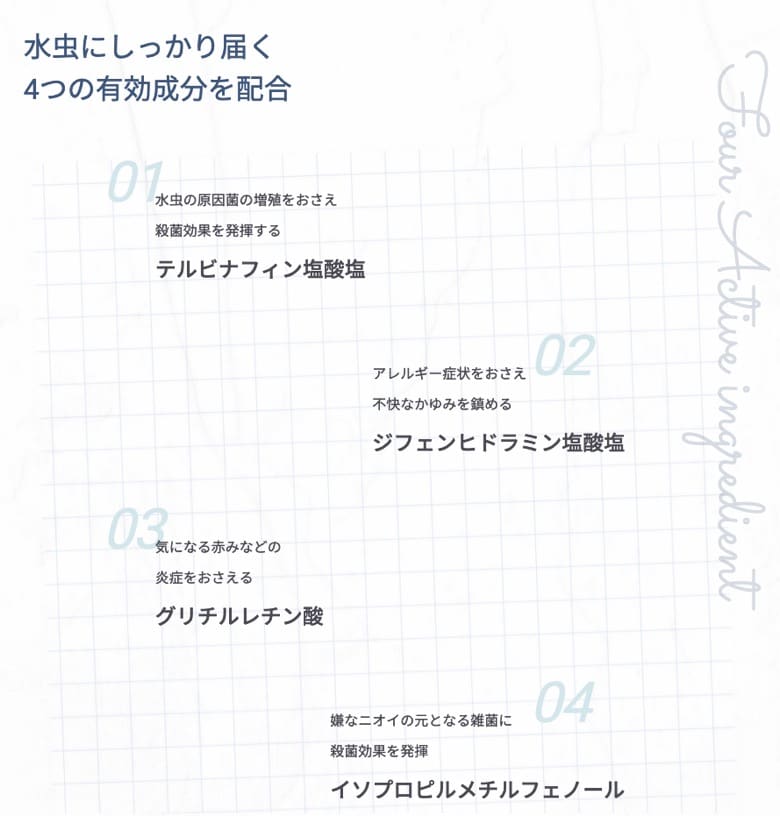 水虫にしっかり届く
4つの有効成分を配合
01
水虫の原因菌の増殖をおさえ
殺菌効果を発揮する
テルビナフィン塩酸塩
02
アレルギー症状をおさえ
不快なかゆみを鎮める
ジフェンヒドラミン塩酸塩
03
気になる赤みなどの
炎症をおさえる
グリチルレチン酸
04
嫌なニオイの元となる雑菌に
殺菌効果を発揮
イソプロピルメチルフェノール
Four Active ingredient